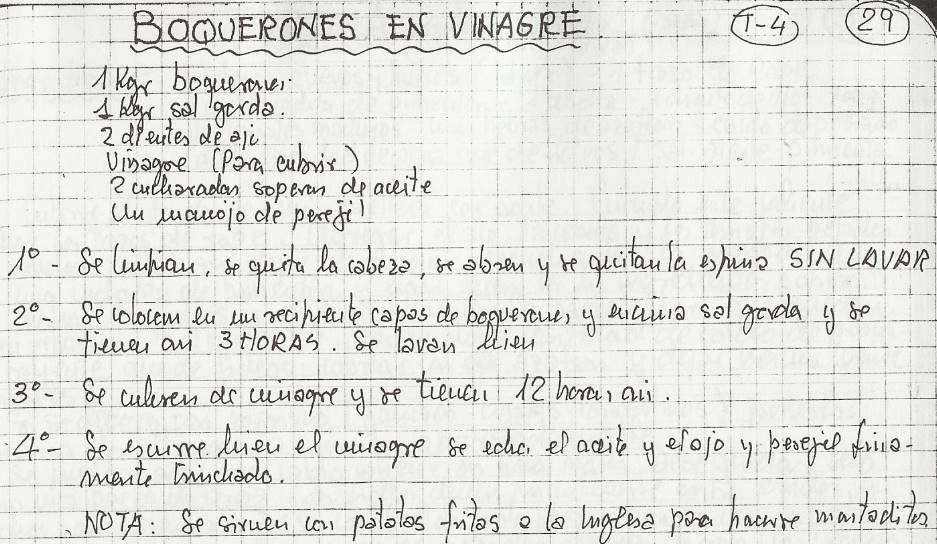 BOQUERONES EN VINAGRE T-4 29
1 Kgr boquerones.
1 kgr sal gorda.
2 dientes de ajo
Vinagre (Para cubrir)
2 cucharadas soperas de aceite
Un manojo de perejil
1º - Se limpian, se quita la cabeza, se abren y se quitan la espina SIN LAVAR
2º - Se colocan en un recipiente capas de boquerones y encima sal gorda y se
tienen asi 3 HORAS. Se lavan bien
3º - Se cubren de vinagre y se tienen 12 horas asi.
4º - Se escurre bien el vinagre se echa el aceite y el ajo y perejil fina-
mente trinchado.
NOTA: Se sirven con patatas fritas a la Inglesa para hacerse montaditos